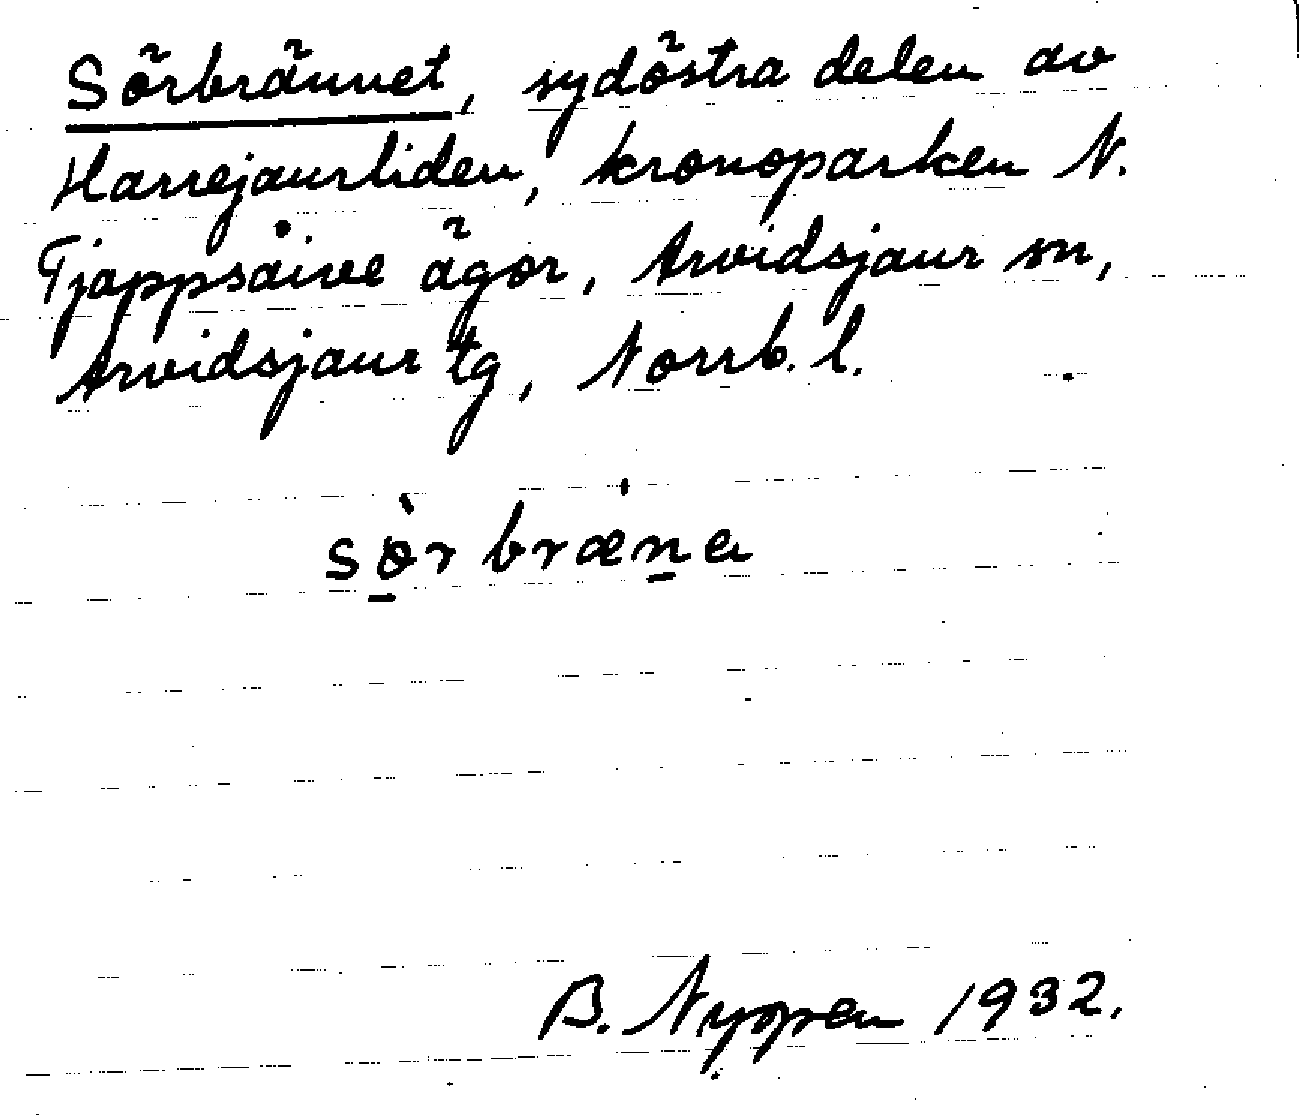 Sörbrännet, sydöstra delen av
Harrejaurliden, kronoparken N.
Tjappsåive ägor, Arvidsjaur sn,
Arvidsjaur tg, Norrb. l.
sö̀r bræ̍na
B. Nyppen 1932.